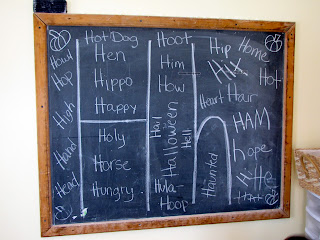 Hot Dog
Hen
Hippo
Happy
Holy
Horse
Hungry
Hop
High
Hand
Head
Hoot
Him
How
Hail
Halloween
Hell
Hula-
Hoop
Hip
Home
Hot
Heart
Hair
HAM
hope
Haunted
Hi-
He